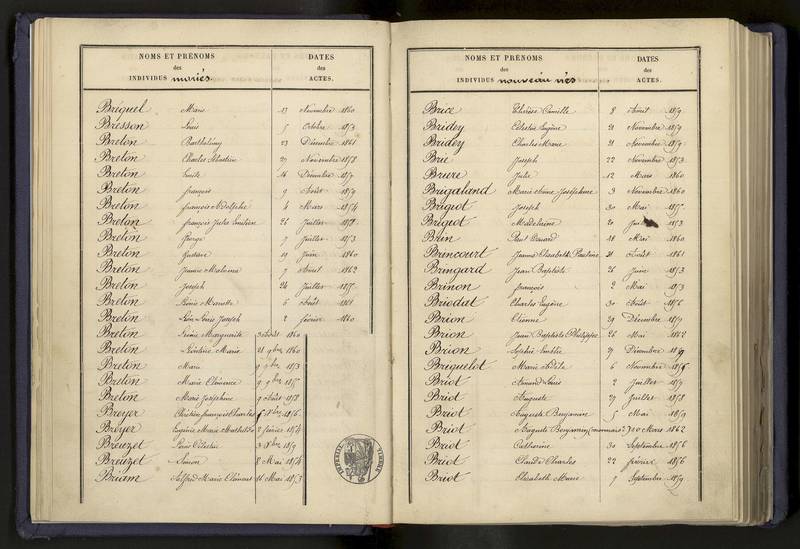 NOMS ET PRÉNOMS
des
INDIVIDUS mariés.
DATES
des
ACTES.
Bréquel Marie 13 Novembre 1860
Bresson Louis 5 Octobre 1853
Breton Barthélémy 23 Décembre 1861
Breton Charles 29 Novembre 1858
Breton Emile 16 Décembre 1859
Breton françois 9 Août 1859
Breton françois Adolphe 4 Mars 1854
Breton françois Jules 26 Juillet
Breton 7 Juillet 1853
Breton Gustave 19 Juin 1860
Breton 7 Avril 1862
Breton Joseph 24 Juillet
Breton Louis 6 Août
Breton Louis Joseph 2 février 1860
Breton Marguerite 3 Août 1860
Breton Marie 21 9bre 1860
Breton Marie 9 9bre 1853
Breton Marie Clémence 9 9bre
Breton Marie Joséphine 9 Août 1858
Breyer Chrétien françois Charles 8bre 1856
Breyer Eugénie Marie Mathilde 2 février 1854
Breuzet Louis Célestin 3 8bre 1859
Breuzet Simon 8 Mai 1854
Briam Alfred Marie Clément 11 Mai 1853
NOMS ET PRÉNOMS
des
INDIVIDUS nouveau nés
DATES
des
ACTES.
Brice Thérèse Camille 8 Avril 1859
Bridey Célestin Eugène 21 Novembre 1859
Bridey Charles Marie 21 Novembre 1859
Brie Joseph 22 Novembre 1853
Briere Julie 12 Mars 1860
Brigaland Marie Anne Joséphine 3 Novembre 1860
Brigiot Joseph 30 Mai
Brigiot Madeleine 20 1853
Brin Paul 18 Mai 1860
Brincourt Jeanne Elisabeth Pauline 21 Août 1861
Bringard Jean Baptiste 26 Juin 1853
Brinon françois 2 Mai 1853
Briodat Charles Eugène 30 Août 1856
Brion Etienne 29 Décembre 1859
Brion Jean Baptiste Philippe 26 Mai 1862
Brion Sophie 29 Décembre
Briquelot Marie Adèle 6 Novembre 1856
Briot Armand Louis 2 Juillet 1859
Briot Auguste 29 Juillet 1858
Briot Auguste Benjamin 5 Mai 1859
Briot Auguste Benjamin Mars 1862
Briot Catherine 30 Septembre 1856
Briot Claude Charles 22 février 1856
Briot Elisabeth Marie 9 Septembre 1859